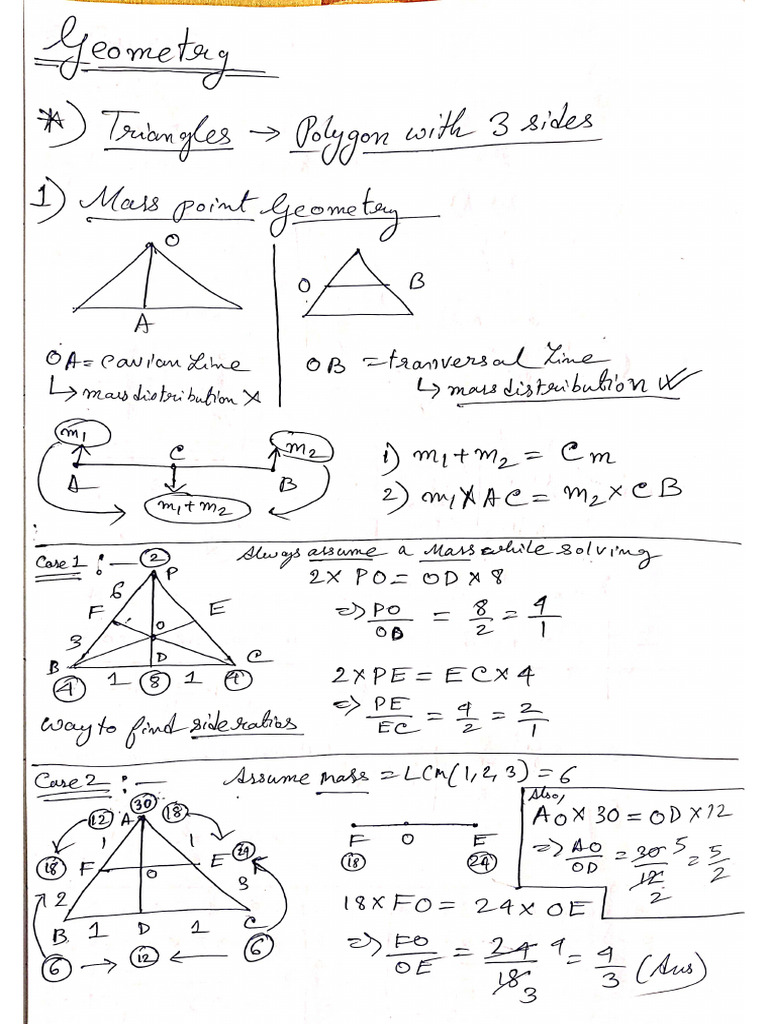 Geometry
*) Triangles → Polygon with 3 sides
1) Mass point Geometry
O
A
O B
OA = cavian Line
↳ mass distribution X
OB = tranversal Line
↳ mass distribution ✓
m1 C m2
A B
m1+m2
1) m1+m2 = Cm
2) m1 X AC = m2 × CB
Case 1 :— Always assume a Mass while solving
2 P
6
F E
O
3
B D C
4 1 8 1 4
way to find side ratios
2 × PO = OD × 8
=> PO/OD = 8/2 = 4/1
2 × PE = EC × 4
=> PE/EC = 4/2 = 2/1
Case 2 :— Assume mass = LCm(1,2,3) = 6
30
12 A 18
1 1
18 F O E 24
2 3
B 1 D 1 C
6 → 12 ← 6
F O E
18 24
Also,
AO × 30 = OD × 12
=> AO/OD = 30/12 5/2 = 5/2
18 × FO = 24 × OE
=> FO/OE = 24/18 4/3 = 4/3 (Ans)